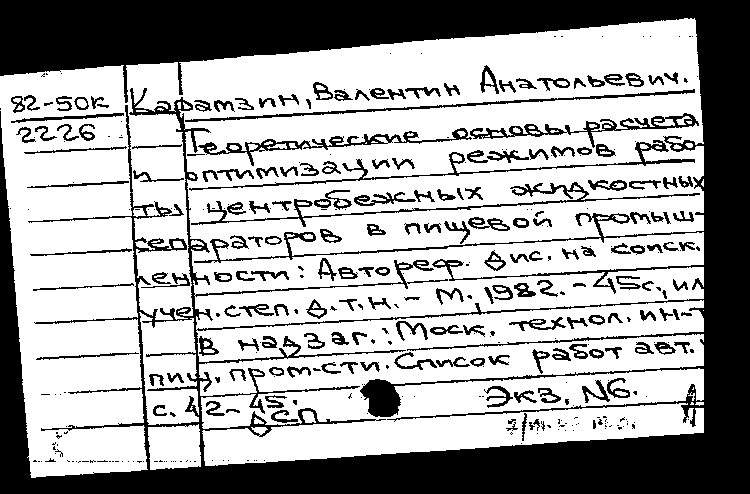 82-50к Карамзин, Валентин Анатольевич.
2226 Теоретические основы расчета
и оптимизации режимов рабо-
ты центробежных жидкостных
сепараторов в пищевой промыш-
ленности: Автореф. Дис. на соиск.
учен. степ. д.т.н. - М., 1982. - 45с., ил
В надзаг.: Моск. технол. ин-т
пищ. пром-сти. Список работ авт.:
с. 42-45.
ДСП.
Экз. N6.